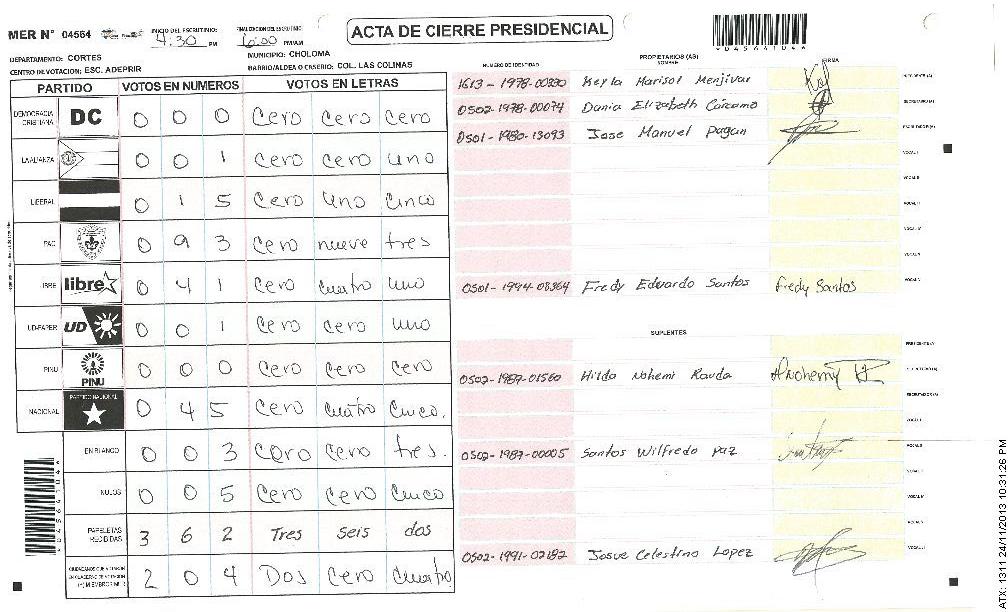 MER N° 04564 INICIO DEL ESCRUTINIO: 4:30 PM FINALIZACION DEL ESCRUTINIO: 6:00 PM/AM
ACTA DE CIERRE PRESIDENCIAL
DEPARTAMENTO: CORTES MUNICIPIO: CHOLOMA
CENTRO DE VOTACION: ESC. ADEPRIR BARRIO/ALDEA O CASERIO: COL. LAS COLINAS
PARTIDO VOTOS EN NUMEROS VOTOS EN LETRAS
DEMOCRACIA CRISTIANA DC 0 0 0 Cero Cero Cero
LA ALIANZA 0 0 1 Cero Cero uno
LIBERAL 0 1 5 Cero uno Cinco
PAC 0 9 3 Cero nueve tres
LIBRE libre 0 4 1 Cero cuatro uno
UD-FAPER UD 0 0 1 Cero Cero uno
PINU PINU 0 0 0 Cero Cero Cero
NACIONAL PARTIDO NACIONAL 0 4 5 Cero Cuatro Cinco.
EN BLANCO 0 0 3 Cero Cero tres.
NULOS 0 0 5 Cero Cero Cinco
PAPELETAS RECIBIDAS 3 6 2 Tres seis dos
2 0 4 Dos Cero Cuatro
PROPIETARIOS (AS)
NUMERO DE IDENTIDAD NOMBRE FIRMA
1613-1978-00330 Keyla Marisol Menjivar PRESIDENTE (A)
0502-1978-00074 Dania Elizabeth Cárcamo SECRETARIO (A)
0501-1980-13093 Jose Manuel Pagan ESCRUTADOR (A)
VOCAL I
VOCAL II
VOCAL III
VOCAL IV
VOCAL V
0501-1994-08364 Fredy Eduardo Santos Fredy Santos
SUPLENTES
PRESIDENTE (A)
0502-1987-01560 Hilda Nohemi Rauda SECRETARIO (A)
ESCRUTADOR (A)
VOCAL I
0502-1987-00005 Santos Wilfredo Paz VOCAL II
VOCAL III
VOCAL IV
VOCAL V
0502-1991-02182 Josue Celestino Lopez
ATX: 1311 24/11/2013 10:31:26 PM